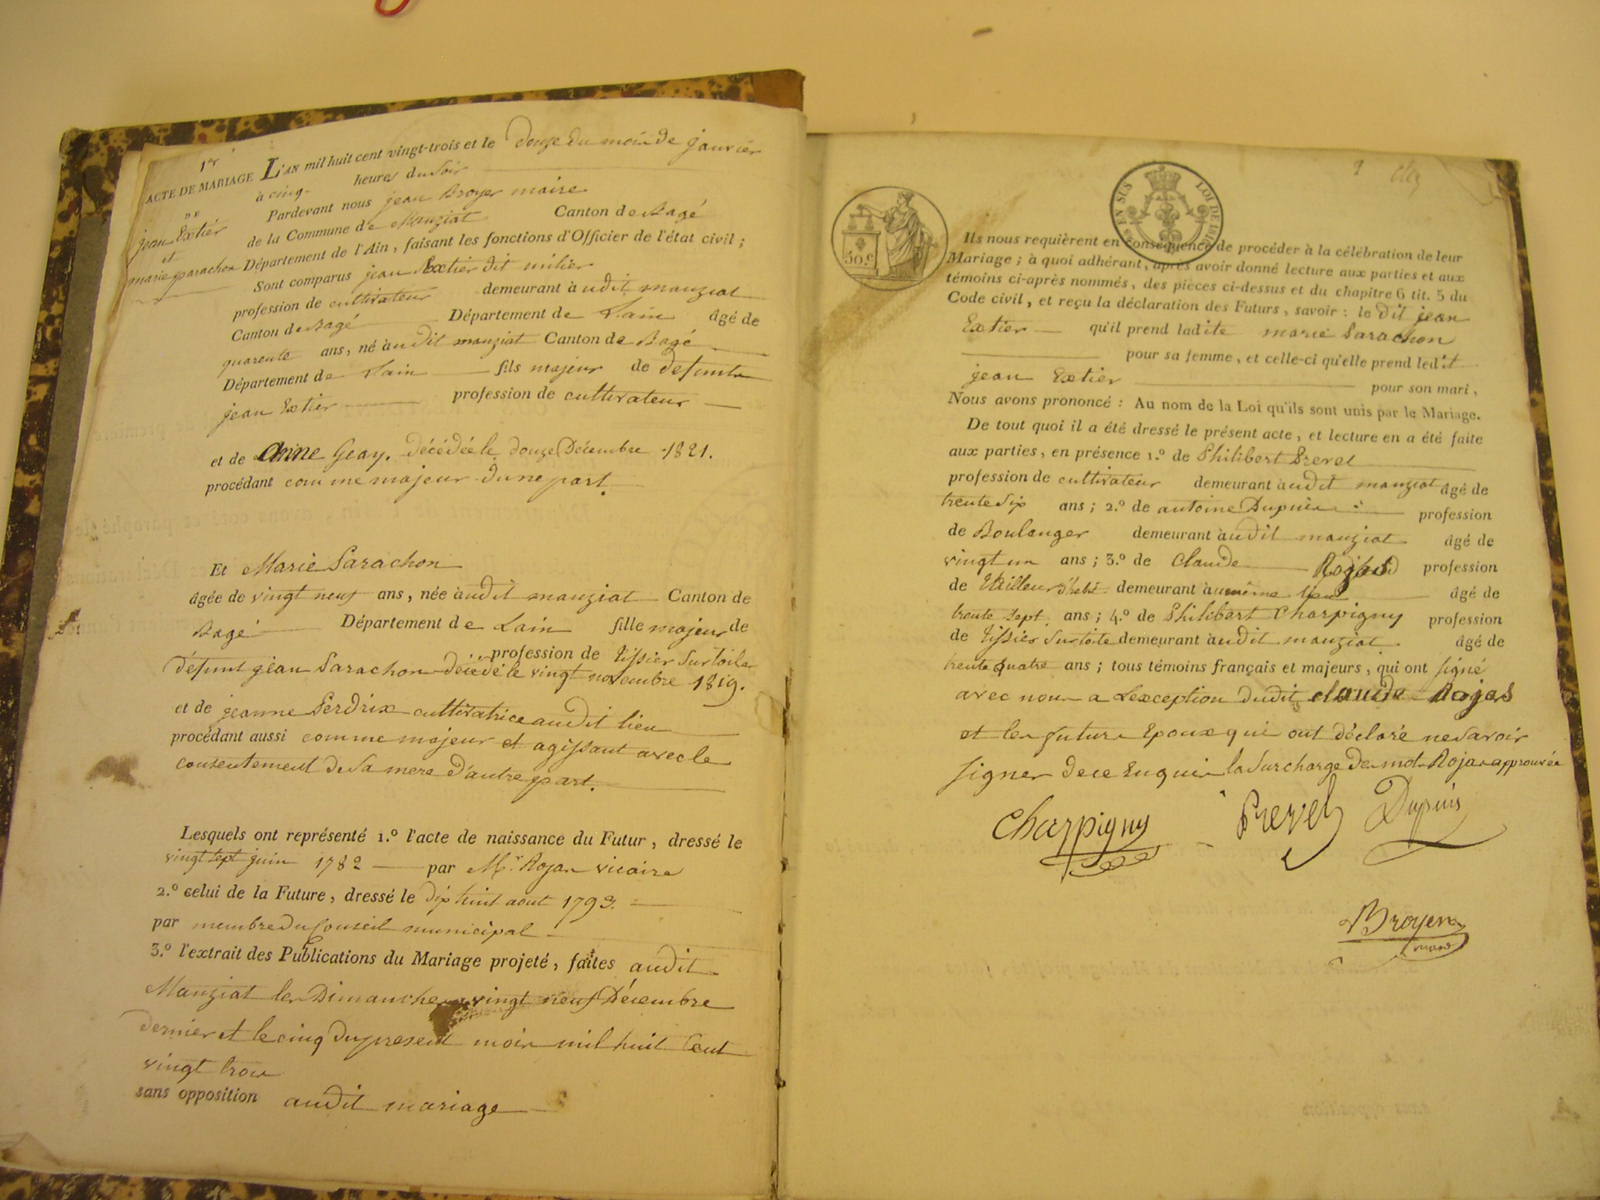 1er
ACTE DE MARIAGE
DE
jean Extier
et
marie parachon
L'AN mil huit cent vingt-trois et le douze du mois de janvier
à cinq heures du soir
Pardevant nous jean Broyer maire
de la Commune de Manziat Canton de Bagé
Département de l'Ain, faisant les fonctions d'Officier de l'état civil;
Sont comparus jean Extier dit milier
profession de cultivateur demeurant à udit manziat
Canton de Bagé Département de Lain âgé de
quarente ans, né àudit manziat Canton de Bagé
Département de Lain fils majeur de defunt
jean Extier profession de cultivateur
et de Anne Geay. décédée le douze Décembre 1821.
procédant comme majeur d'une part.
Et Marie Parachon
âgée de vingt neuf ans, née àudit manziat Canton de
Bagé Département de Lain fille majeur de
profession de tissier sur toile
défunt jean Parachon décédé le vingt novembre 1819.
et de jeanne Perdrix cultivatrice audit lieu
procédant aussi comme majeur et agissant avec le
consentement de sa mere d'autre part.
Lesquels ont représenté 1.º l'acte de naissance du Futur, dressé le
vingt sept juin 1782 par Mr. Rojas vicaire
2.º celui de la Future, dressé le dix huit aout 1793.
par membre du Conseil municipal
3.º l'extrait des Publications du Mariage projeté, faites audit
Manziat les Dimanches vingt neuf Décembre
dernier et le cinq du present mois mil huit Cent
vingt trois
sans opposition audit mariage
9
30.c
EN SUS LOI DE
Ils nous requièrent en conséquence de procéder à la célébration de leur
Mariage; à quoi adhérant, après avoir donné lecture aux parties et aux
témoins ci-après nommés, des pièces ci-dessus et du chapitre 6 tit. 5 du
Code civil, et reçu la déclaration des Futurs, savoir: le dit jean
Extier qu'il prend ladite marie Parachon
pour sa femme, et celle-ci qu'elle prend ledit
jean Extier pour son mari,
Nous avons prononcé: Au nom de la Loi qu'ils sont unis par le Mariage.
De tout quoi il a été dressé le présent acte, et lecture en a été faite
aux parties, en présence 1.º de Philibert Prevel
profession de cultivateur demeurant àudit manziat âgé de
trente six ans; 2.º de antoine Dupuis profession
de Boulanger demeurant àudit manziat âgé de
vingt un ans; 3.º de Claude Rojas profession
de tailleur d'habi demeurant àu même lieu âgé de
trente sept ans; 4.º de Philibert Charpigny profession
de tissier sur toile demeurant àudit manziat âgé de
trente quatre ans; tous témoins français et majeurs, qui ont signé
avec nous a Lexception dudit claude Rojas
et les futurs Epoux qui ont déclaré ne savoir
signer de ce Enquis la surcharge de mot Rojas approuvée
Charpigny Prevel Dupuis
Broyer
maire